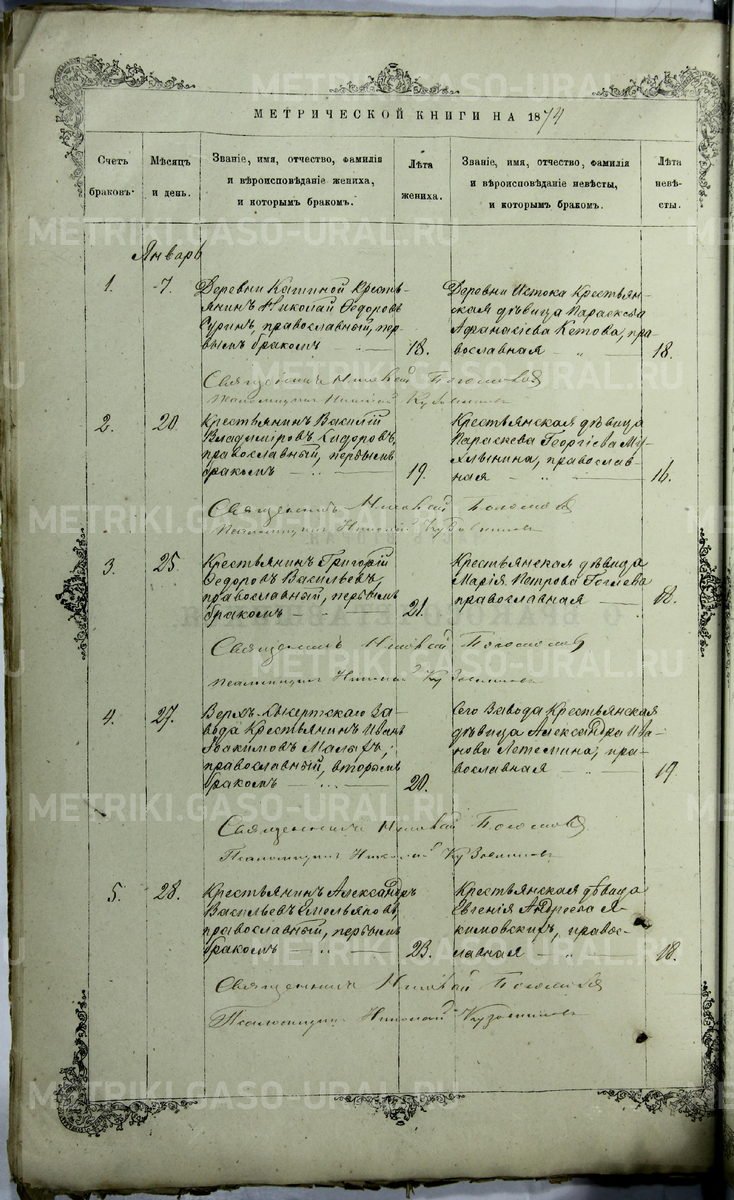 МЕТРИЧЕСКОЙ КНИГИ НА 1874
Счетъ браковъ.
Мѣсяцъ и день.
Званіе, имя, отчество, фамилія
и вѣроисповѣданіе жениха,
и которымъ бракомъ.
Лѣта жениха.
Званіе, имя, отчество, фамилія
и вѣроисповѣданіе невѣсты,
и которымъ бракомъ.
Лѣта невѣ-
сты.
Январь
1. 7.
Деревни Каткиной Кресть-
янинъ Николай Ѳедоровъ
Суринъ, православный, пер-
вымъ бракомъ 18.
Деревни Истока Крестьян-
ская дѣвица Параскева
Афанасіева Кетова, пра-
вославная 18.
Священникъ Николай
Псаломщикъ Николай
2. 20
Крестьянинъ Василій
Владиміровъ Сидоровъ,
православный, первымъ
бракомъ 19.
Крестьянская дѣвица
Параскева Георгіева Му-
хлынина, православ-
ная 16.
Священникъ Николай
Псаломщикъ Николай
3. 25.
Крестьянинъ Григорій
Ѳедоровъ Васильевъ,
православный, первымъ
бракомъ 21.
Крестьянская дѣвица
Марія Петрова
православная 18.
Священникъ Николай
Псаломщикъ Николай
4. 27.
Верхъ-Сысертскаго За-
вода Крестьянинъ Иванъ
Іоакимовъ
православный, вторымъ
бракомъ 20.
Сего Завода Крестьянская
дѣвица Александра Ива-
нова Летемина, пра-
вославная 19
Священникъ Николай
Псаломщикъ Николай
5. 28.
Крестьянинъ Александръ
Васильевъ Емельяновъ,
православный, первымъ
бракомъ 23.
Крестьянская дѣвица
Евгенія Андреева Я-
кимовскихъ, правос-
лавная 18.
Священникъ Николай
Псаломщикъ Николай
METRIKI.GASO-URAL.RU